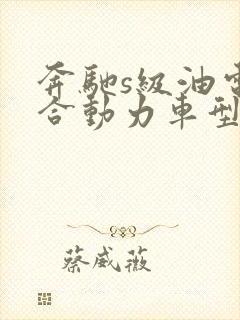 奔馳s級油電
合動力車型
蔡威薇